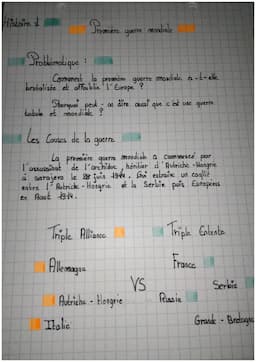 Histoire 1
Première guerre mondiale
Problématique :
Comment la première guerre mondiale a-t-elle
brutalisée et affaiblie l'Europe ?
Pourquoi peut-on dire aussi que c'est une guerre
totale et mondiale ?
Les Causes de la guerre
La première guerre mondiale a commencé par
l'assassinat de l'archiduc, héritier d'Autriche-Hongrie
à Sarajevo le 28 juin 1914. Qui entraîne un conflit
entre l'Autriche-Hongrie et la Serbie puis Européens
en Août 1914.
Triple Alliance
Triple Entente
Allemagne
France
VS
Serbie
Autriche-Hongrie
Russie
Italie
Grande-Bretagne